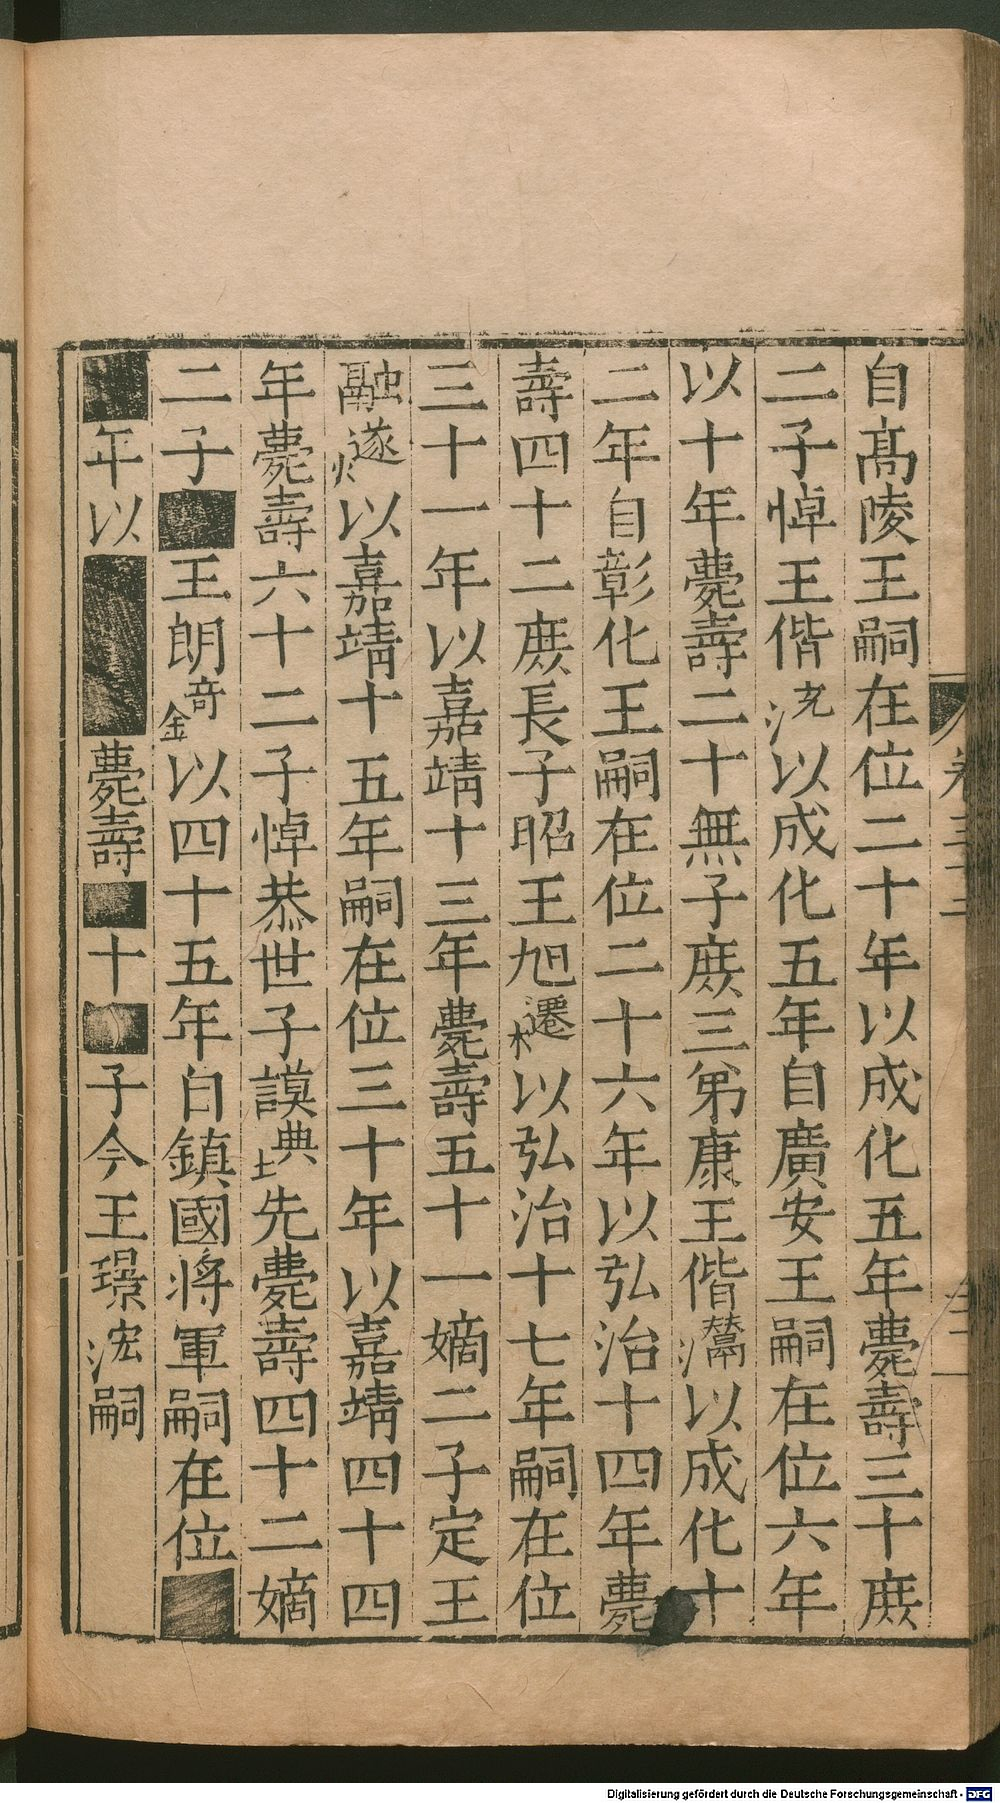 自高陵王嗣在位二十年以成化五年薨壽三十庶
二子悼王偕㳘以成化五年自廣安王嗣在位六年
以十年薨壽二十無子庶三弟康王偕灊以成化十
二年自彰化王嗣在位二十六年以弘治十四年薨
壽四十二庶長子昭王旭櫏以弘治十七年嗣在位
三十一年以嘉靖十三年薨壽五十一嫡二子定王
融燧以嘉靖十五年嗣在位三十年以嘉靖四十四
年薨壽六十二子悼恭世子謨㙉先薨壽四十二嫡
二子■王朗錡以四十五年自鎮國將軍嗣在位■
■年以■■■薨壽■十■子今王璟浤嗣
Digitalisierung gefördert durch die Deutsche Forschungsgemeinschaft - DFG